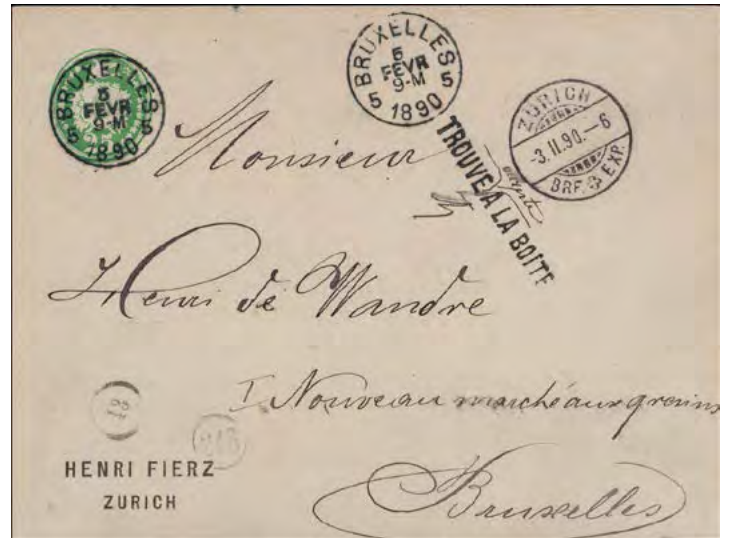 BRUXELLES
5
FEVR
9-M
5 1890 5
BRUXELLES
5
FEVR
9-M
5 1890 5
ZÜRICH
-3.II.90.-6
BRF. EXP.
TROUVE A LA BOITE
ouverte
Monsieur
Henri de Wandre
1 Nouveau marché aux grains
Bruxelles
25
HENRI FIERZ
ZURICH